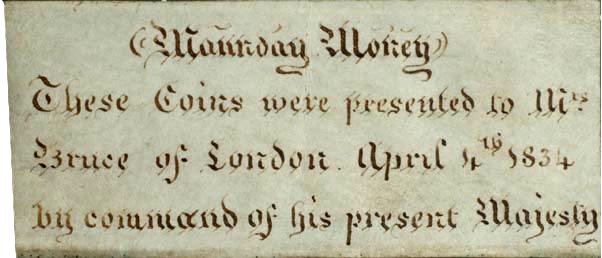 (Maunday Money)
These Coins were presented to Mrs
Bruce of London. April 4th 1834
by command of his present Majesty